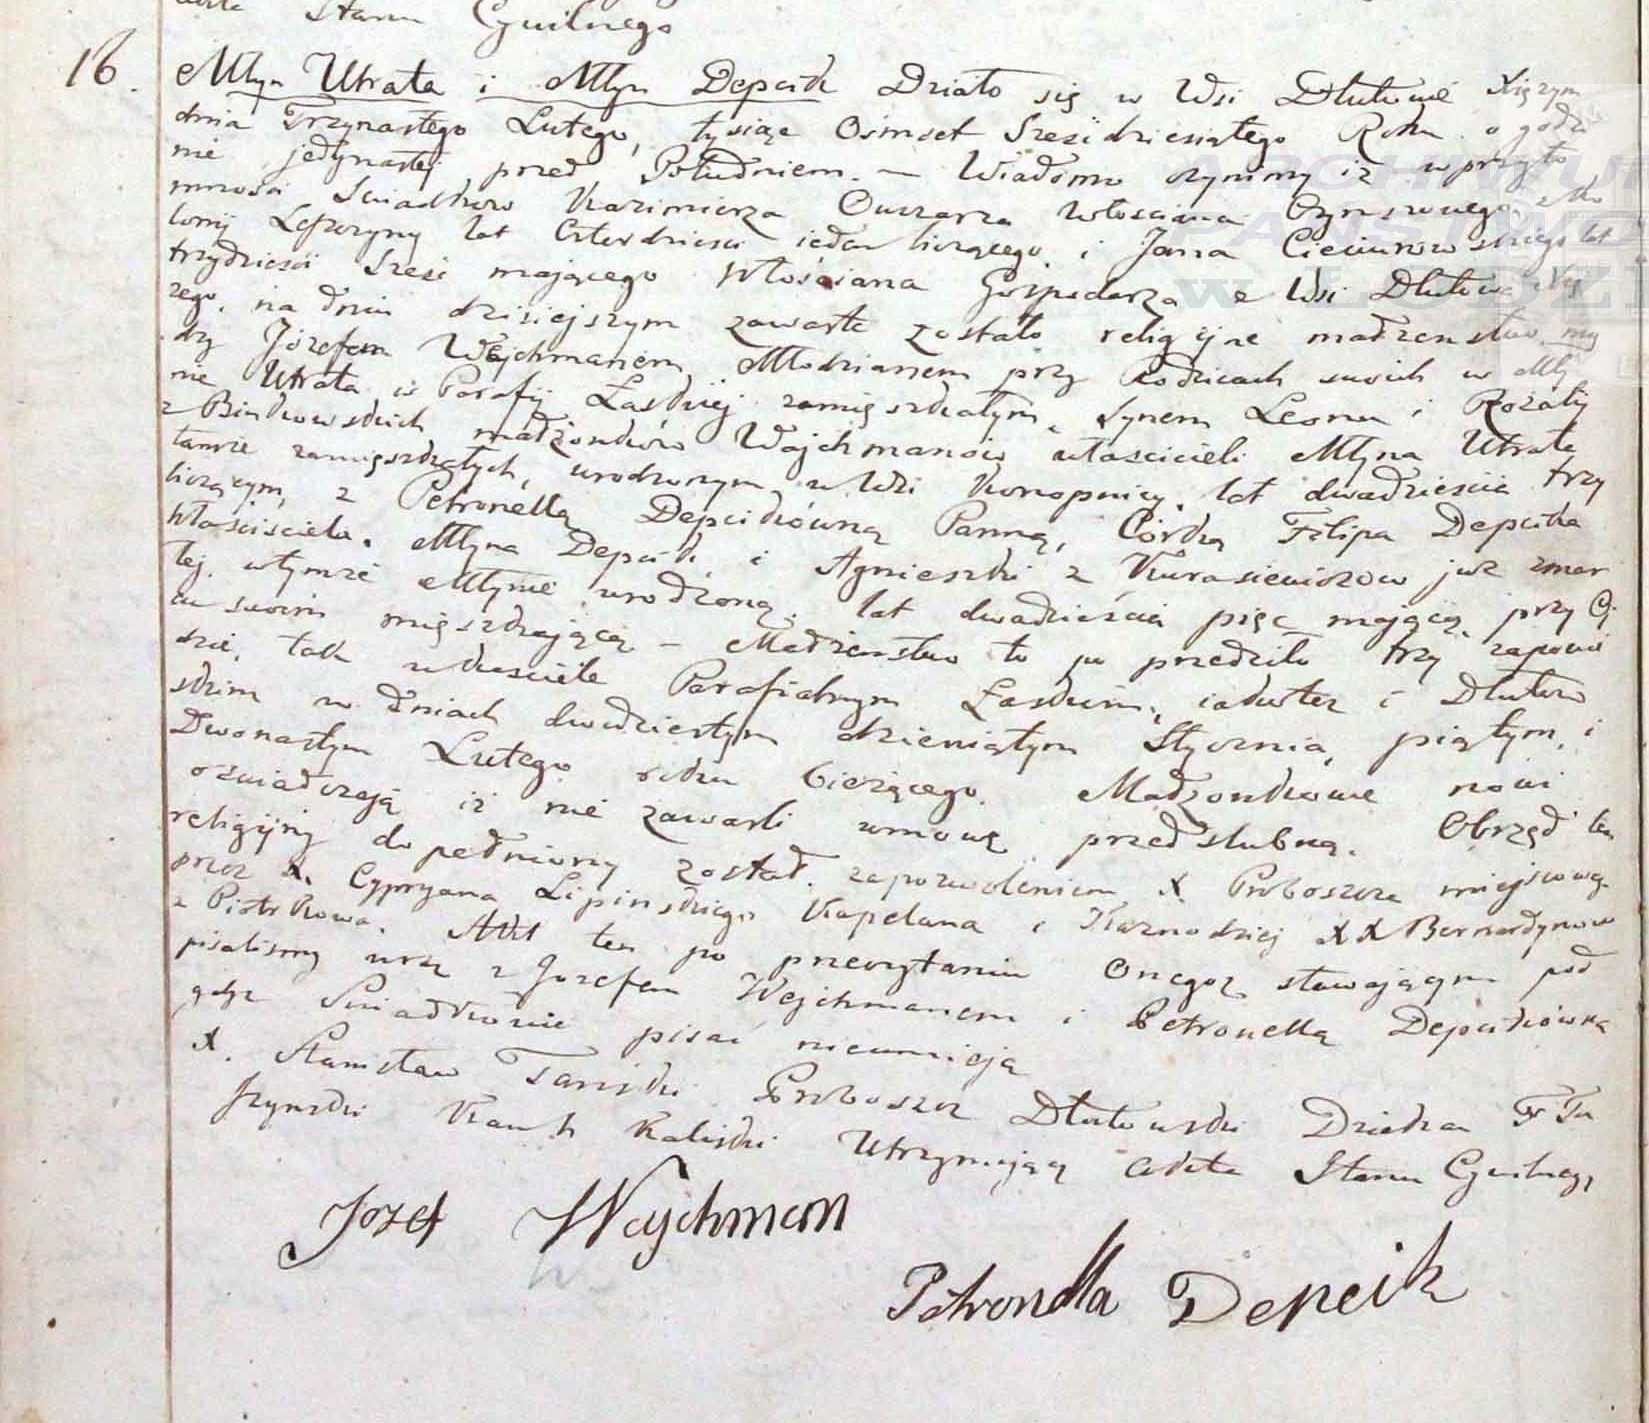 Akta Stanu Cywilnego
16. Młyn Utrata i Młyn Depcik Działo się w Wsi Dłutowie Xiężym
dnia Trzynastego Lutego, tysiąc Ośmset Sześćdziesiątego Roku o godzi
nie jedynastej przed Południem. — Wiadomo czynimy iż w przyto
mności Swiadków Kazimierza Owczarza Włościana Czynszowego z Ko
lonij Leszczyny lat Czterdzieści ieden liczącego, i Jana Cieciurowskiego lat
trzydzieści Sześć mającego Włościana Gospodarza z Wsi Dłutowa
żego, na dniu dzisiejszym zawarte zostało religijne małżenstwo mię
dzy Józefem Wejchmanem Młodzianem przy Rodzicach swoich w Mły
nie Utrata w Parafij Łaskiej zamięszkałym, synem Leona i Rozalij
z Binkowskich małżonków Wajchmanów właścicieli Młyna Utrata
tamże zamięszkałych, urodzonym w Wsi Konopnicy, lat dwadzieścia trzy
liczącym, z Petronellą Depcikówną Panną, Córką Filipa Depcika
Właściciela Młyna Depcik i Agnieszki z Kurasiewiczow już zmar
łej, w tymże Młynie urodzoną, lat dwadzieścia pięc mającą, przy Oj
cu swoim mięszkającą — Małżenstwo to po przedziło trzy zapowie
dzie, tak w kościele Parafialnym Łaskim, iakoteż i Dłutow
skim w dniach dwudziestym dziewiątym Stycznia, piątym, i
Dwonastym Lutego roku bieżącego. Małżonkowie nowi
oświadczają iż nie zawarli umowę przedślubną. Obrzęd ten
religijny dopełniony został zapozwoleniem X Proboszcza miejscowego
przez X. Cypryana Lipinskiego Kapelana i Kaznodziej XX Bernardynow
z Piotrkowa. Akt ten po przeczytaniu Onegoż stawającym pod
pisaliśmy wraz z Jozefem Wejchmanem i Petronellą Depcikówną
gdyż Swiadkowie pisać nieumieją
X. Stanisław Taniski Proboszcz Dłutowski Dziekan F Tu
szynski Kan h Kaliski Utrzymujący Akta Stanu Cywilnego
Jozef Wejchman
Petronella Depcik
ARCHIWUM
PAŃSTWOWE
w ŁODZI